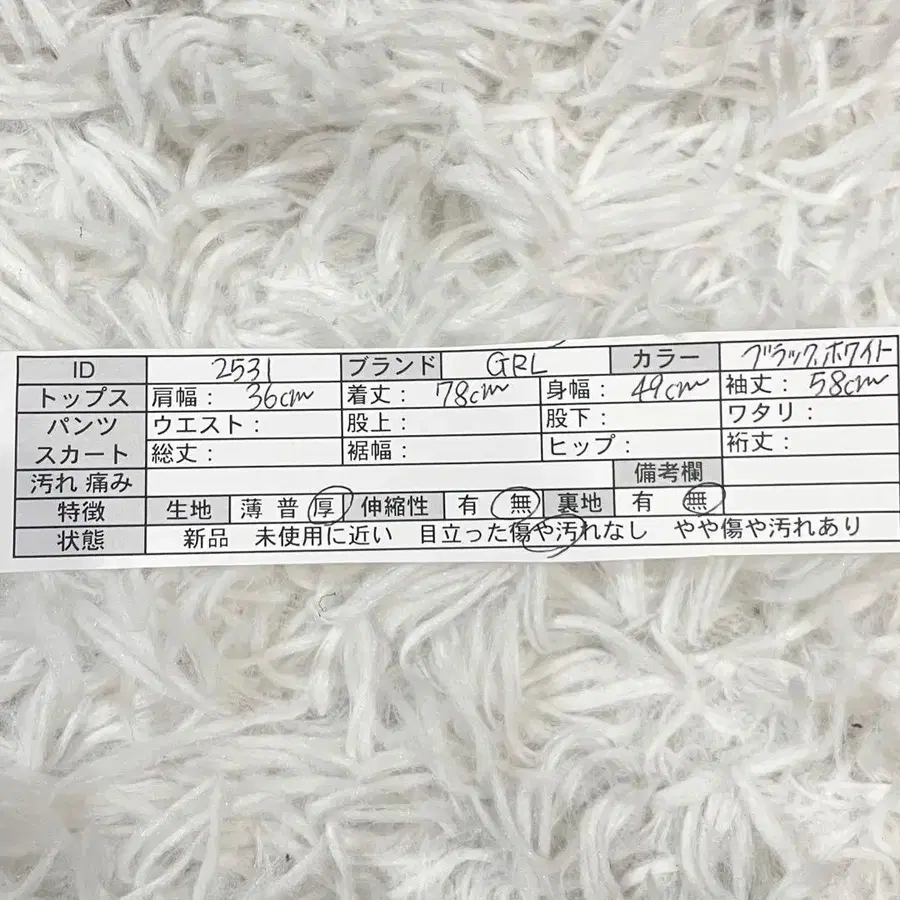 ID 2531 ブランド GRL カラー ブラック、ホワイト
トップス 肩幅: 36cm 着丈: 78cm 身幅: 49cm 袖丈: 58cm
パンツ ウエスト: 股上: 股下: ワタリ:
スカート 総丈: 裾幅: ヒップ: 裄丈:
汚れ 痛み 備考欄
特徴 生地 薄 普 厚 伸縮性 有 無 裏地 有 無
状態 新品 未使用に近い 目立った傷や汚れなし やや傷や汚れあり